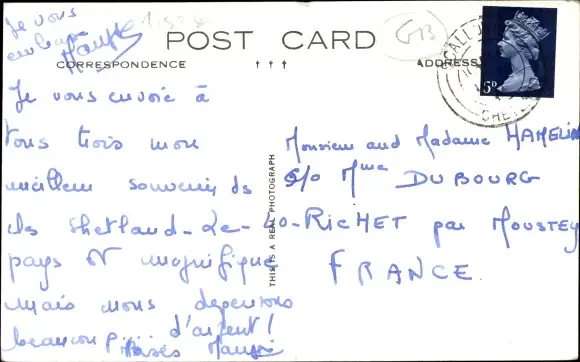 Je vous
embrasse
POST CARD
GB
CORRESPONDENCE
ADDRESS
5D
Je vous envoie à
vous trois mon
meilleur souvenir des
iles Shetland. Le
pays est magnifique
mais nous depensons
beaucoup d'argent!
Baisés
THIS IS A REAL PHOTOGRAPH
Monsieur and Madame HAMELIN
c/o Mme DUBOURG
40-RICHET par MOUSTEY
FRANCE